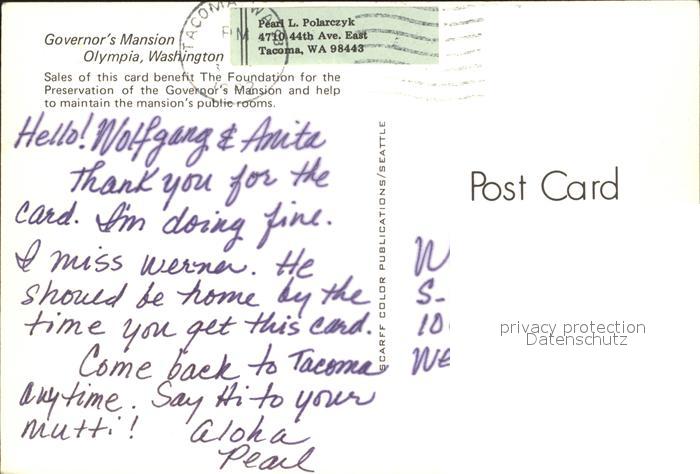 TACOMA, WA
PM
Pearl L. Polarczyk
4710 44th Ave. East
Tacoma, WA 98443
Governor's Mansion
Olympia, Washington
Sales of this card benefit The Foundation for the
Preservation of the Governor's Mansion and help
to maintain the mansion's public rooms.
Hello! Wolfgang & Anita
Thank you for the
card. I'm doing fine.
I miss Werner. He
should be home by the
time you get this card.
Come back to Tacoma
anytime. Say Hi to your
Mutti! Aloha
Pearl
SCARFF COLOR PUBLICATIONS/SEATTLE
Post Card
W
S-
10
We
privacy protection
Datenschutz